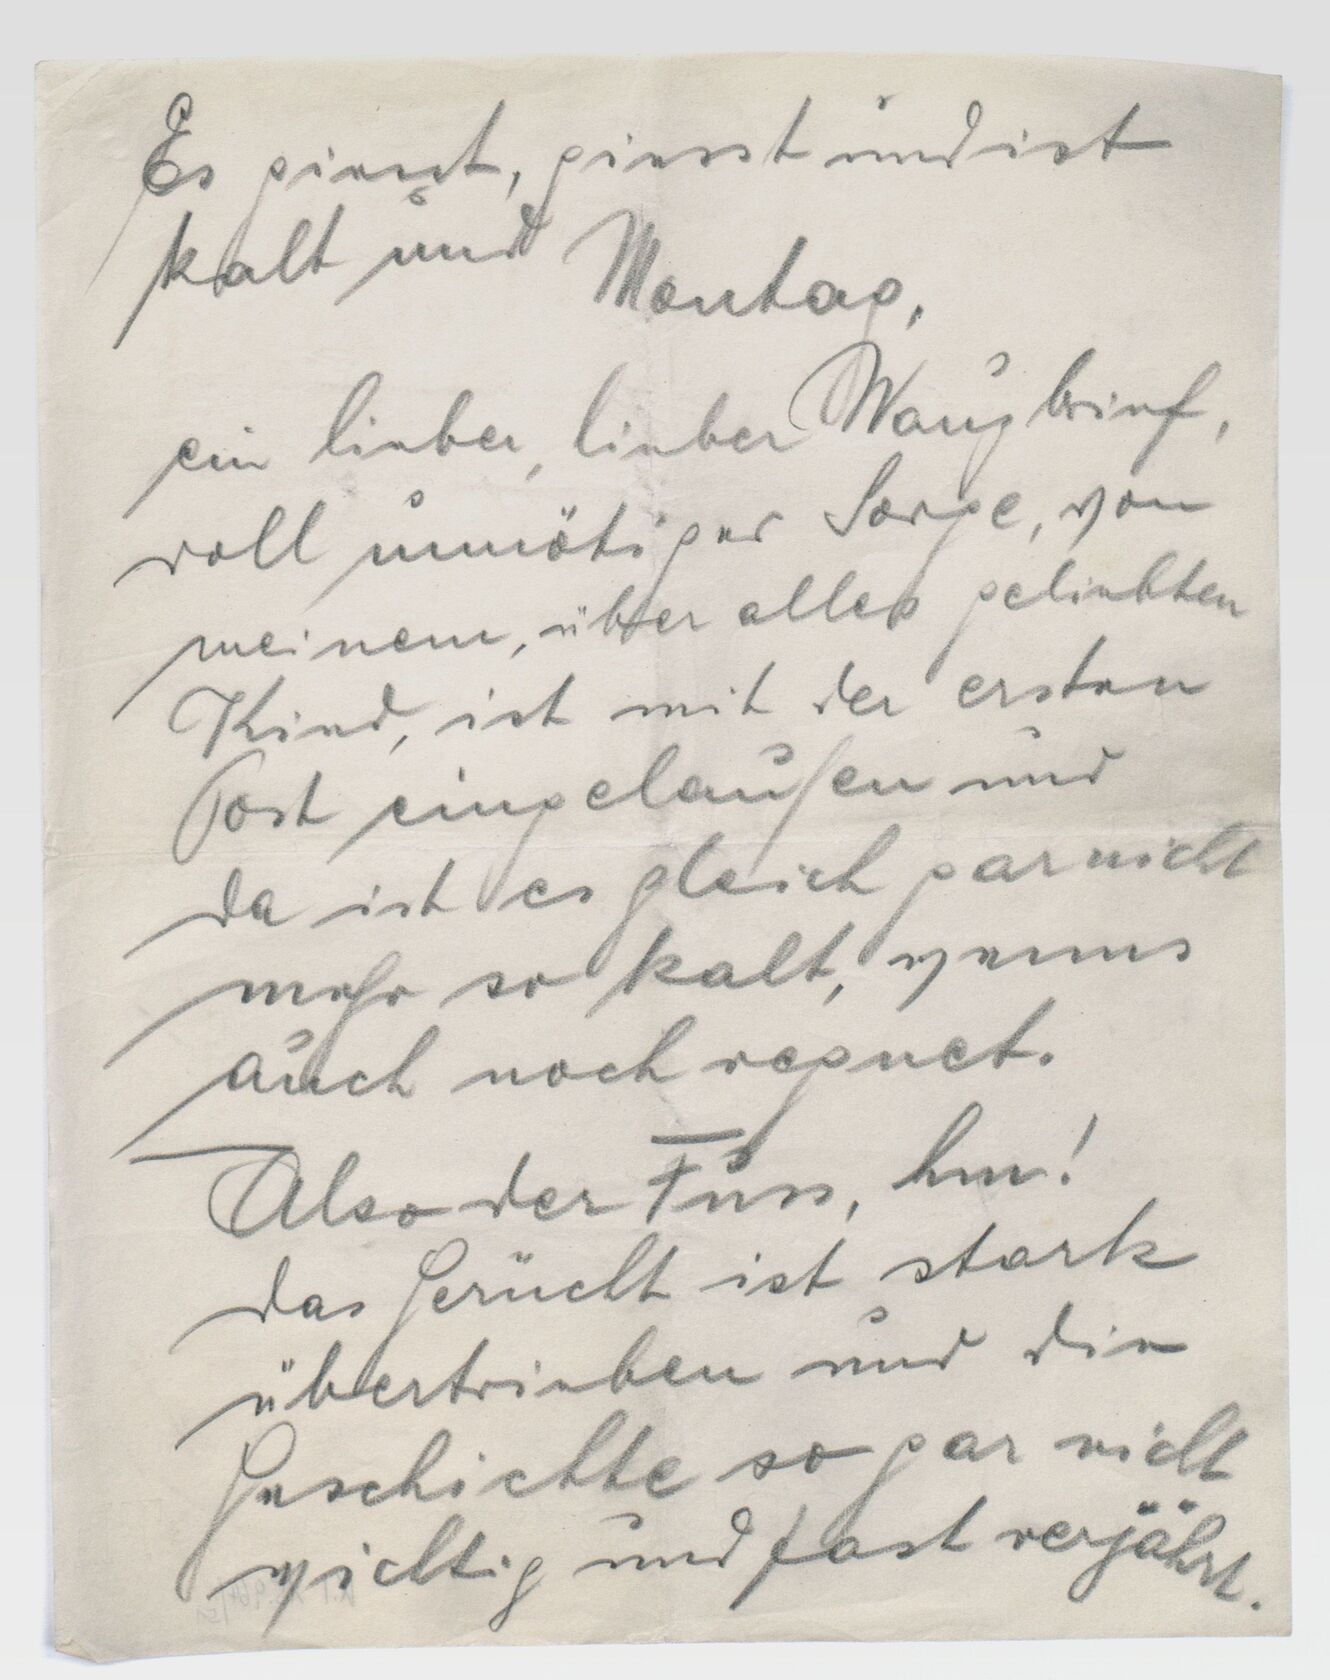 Es giesst, giesst und ist
kalt und Montag,
ein lieber, lieber Brief,
voll unnötiger Sorge, von
meinem, über alles geliebten
Kind, ist mit der ersten
Post eingelaufen und
da ist es gleich gar nicht
mehr so kalt, wenns
auch noch regnet.
Also der Fuss, hm!
das Gerücht ist stark
übertrieben und die
Geschichte so gar nicht
wichtig und fast verjährt.